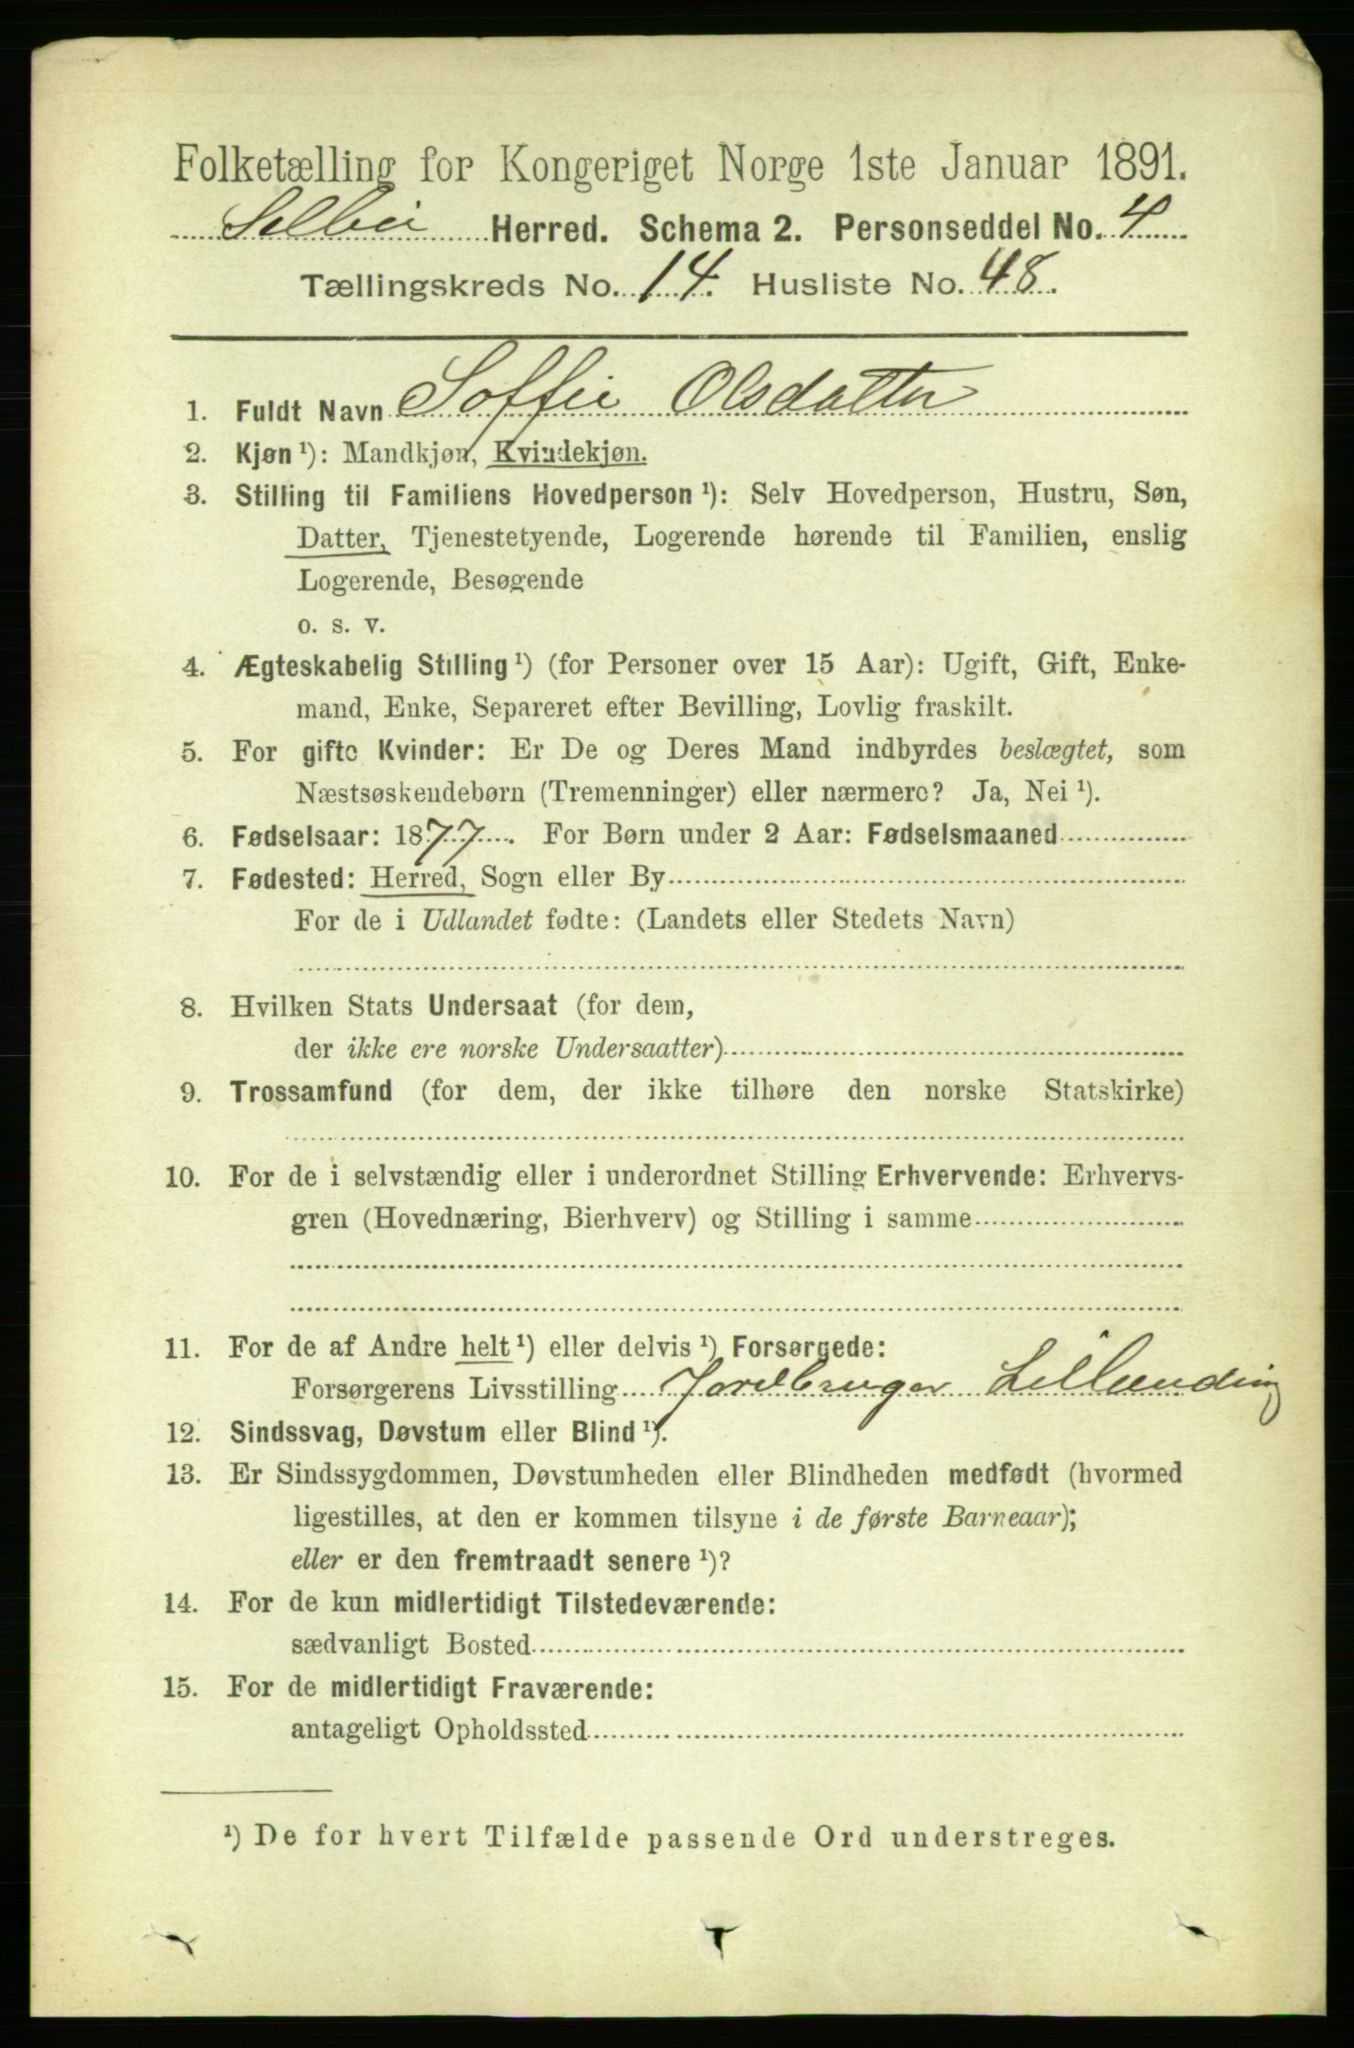 Folketælling for Kongeriget Norge 1ste Januar 1891.
Selbu Herred. Schema 2. Personseddel No. 4
Tællingskreds No. 14. Husliste No. 48.
1. Fuldt Navn Soffie Olsdatter
2. Kjøn ¹): Mandkjøn, Kvindekjøn.
3. Stilling til Familiens Hovedperson ¹): Selv Hovedperson, Hustru, Søn,
Datter, Tjenestetyende, Logerende hørende til Familien, enslig
Logerende, Besøgende
o. s. v.
4. Ægteskabelig Stilling ¹) (for Personer over 15 Aar): Ugift, Gift, Enke-
mand, Enke, Separeret efter Bevilling, Lovlig fraskilt.
5. For gifte Kvinder: Er De og Deres Mand indbyrdes beslægtet, som
Næstsøskendebørn (Tremenninger) eller nærmere? Ja, Nei ¹).
6. Fødselsaar: 1877. For Børn under 2 Aar: Fødselsmaaned
7. Fødested: Herred, Sogn eller By
For de i Udlandet fødte: (Landets eller Stedets Navn)
8. Hvilken Stats Undersaat (for dem,
der ikke ere norske Undersaatter)
9. Trossamfund (for dem, der ikke tilhøre den norske Statskirke)
10. For de i selvstændig eller i underordnet Stilling Erhvervende: Erhvervs-
gren (Hovednæring, Bierhverv) og Stilling i samme
11. For de af Andre helt ¹) eller delvis ¹) Forsørgede:
Forsørgerens Livsstilling Jordbruger
12. Sindssvag, Døvstum eller Blind ¹).
13. Er Sindssygdommen, Døvstumheden eller Blindheden medfødt (hvormed
ligestilles, at den er kommen tilsyne i de første Barneaar);
eller er den fremtraadt senere ¹)?
14. For de kun midlertidigt Tilstedeværende:
sædvanligt Bosted
15. For de midlertidigt Fraværende:
antageligt Opholdssted
¹) De for hvert Tilfælde passende Ord understreges.